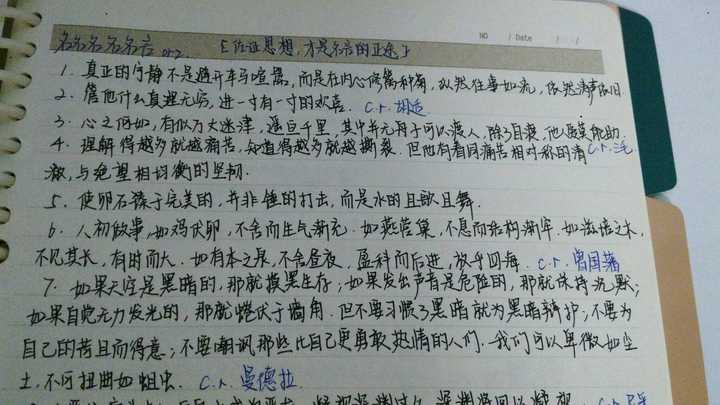 NO / Date / /
名言 [佐证思想,才是名言的正途]
1. 真正的宁静不是避开车马喧嚣,而是在内心修篱种菊,纵然往事如流,依然涛声依旧.
2. 管他什么真理无穷,进一寸有一寸的欢喜. c.r. 胡适
3. 心之何如,有似万丈迷津,遥亘千里,其中并无舟子可以渡人,除了自渡,他人爱莫能助. c.r. 三毛
4. 理解得越多就越痛苦.知道得越多就越撕裂.但他有着同痛苦相对称的清
澈,与绝望相均衡的坚韧.
5. 使卵石臻于完美的,并非锤的打击,而是水的且歌且舞.
6. 人初做事,如鸡伏卵,不舍而生气渐充.如燕营巢,不息而结构渐牢.如滋培之木,
不见其长,有时而大.如有本之泉,不舍昼夜,盈科而后进,放乎四海. c.r. 曾国藩
7. 如果天空是黑暗的,那就摸黑生存;如果发出声音是危险的,那就保持沉默;
如果自觉无力发光的,那就蜷伏于墙角.但不要习惯了黑暗就为黑暗辩护;不要为
自己的苟且而得意;不要嘲讽那些比自己更勇敢热情的人们.我们可以卑微如尘
土,不可扭曲如蛆虫. c.r. 曼德拉